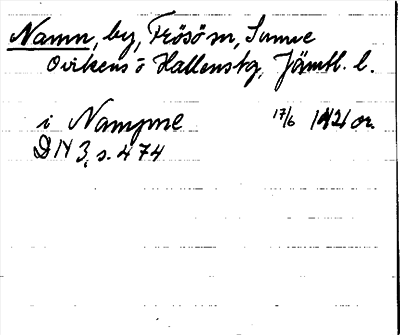 Namn, by, Frösö sn, Sunne
Ovikens o Hallens tg, Jämtl. l.
i Nampne 17/6 1421 or.
DN 3, s. 474